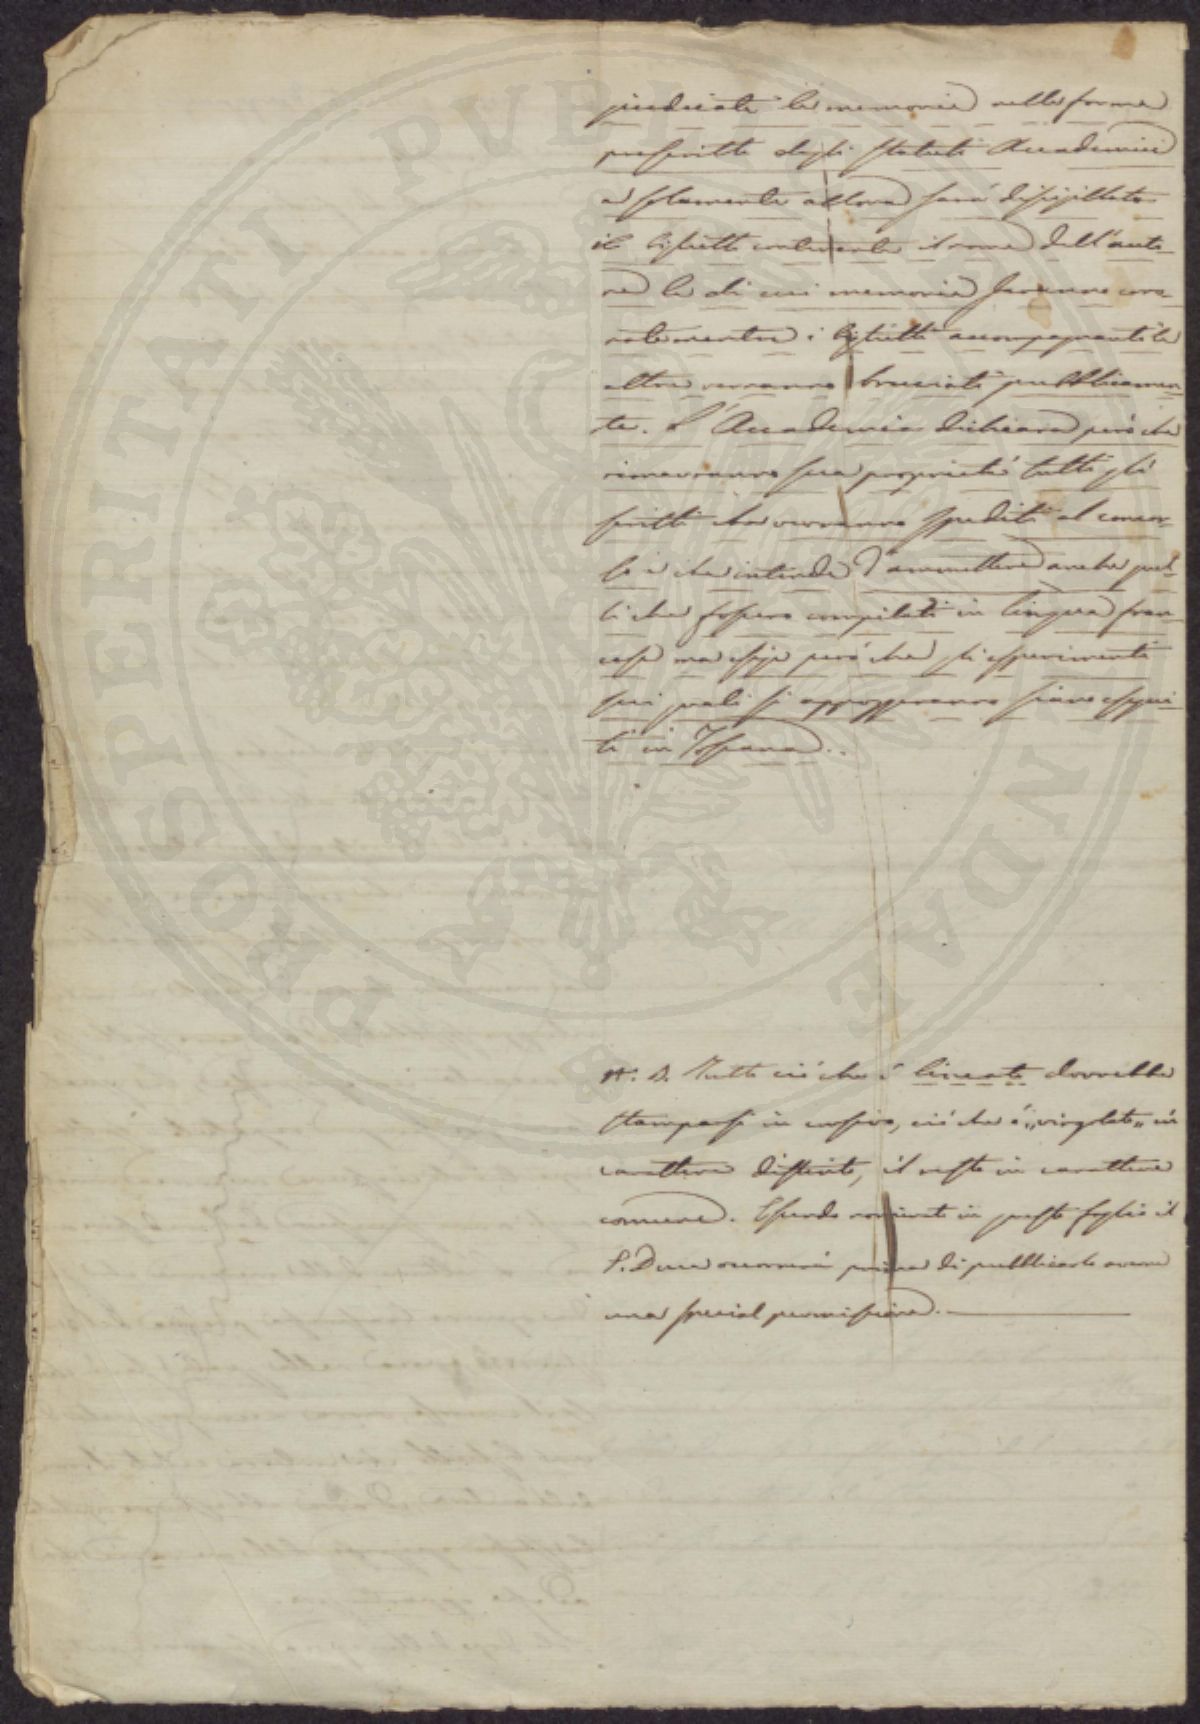 giudicate le memorie nelle forme
prescritte dagli Statuti Accademici
e solamente allora sarà disigillato
il biglietto contenente il nome dell'auto-
re la di cui memoria coro-
nata mentre i biglietti accompagnanti le
altre verranno bruciati pubblicamen-
te. L'Accademia dichiara però che
rimarranno sua proprietà tutti gli
scritti che verranno spediti al concor-
so e che intende d'ammettere anche quel-
li che fossero compilati in lingua fran-
cese ma esige però che gli esperimenti
sui quali si appoggeranno siano esegui-
ti in Toscana.
N. B. Tutto ciò che è lineato dovrebbe
stamparsi in corsivo, ciò che è „virgolato„ in
carattere distinto, il resto in carattere
comune. Essendo nominato in questo foglio il
G. Duca occorrerà prima di pubblicarlo avere
una special permissione.
PROSPERITATI PVBLICAE AVGENDAE